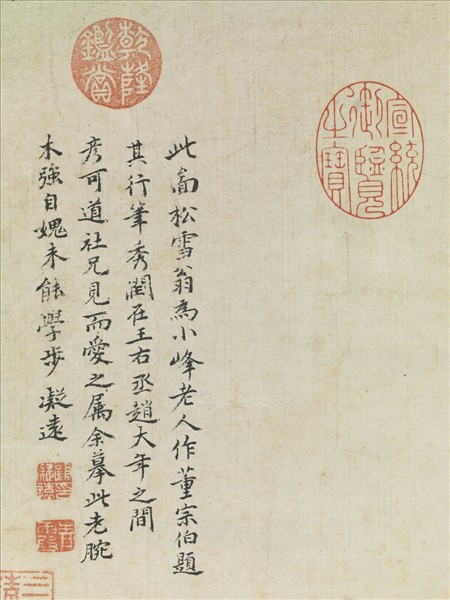 宣統
御覽
之寶
此啚松雪翁為小峰老人作董宗伯題
其行筆秀潤在王右丞趙大年之間
彥可道社兄見而愛之属余摹此老腕
木強自媿未能學步 凝遠
乾隆
鑑賞